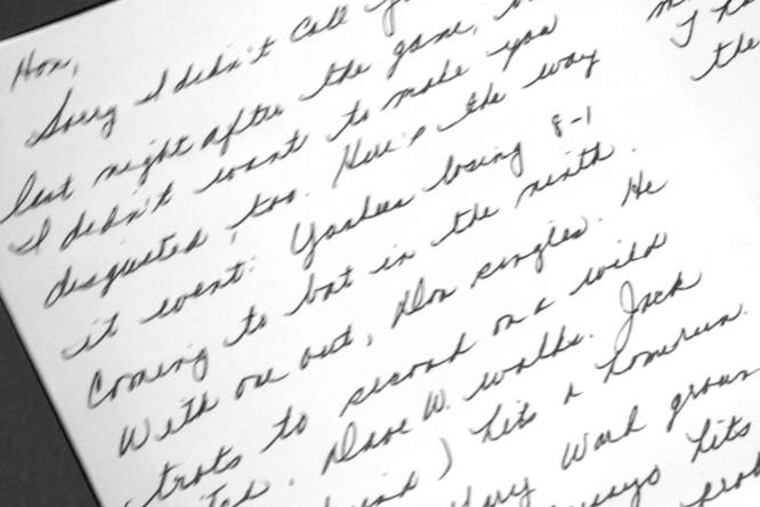 Hon,
Sorry I didn't call
last night after the game,
I didn't want to make you
disgusted, too. Here's the way
it went: Yankees losing 8-1
Coming to bat in the ninth.
With one out, Don singles. He
trots to second on a wild
Dave W. walks. Jack
) hits a homerun.
Gary Ward
hits
I
the